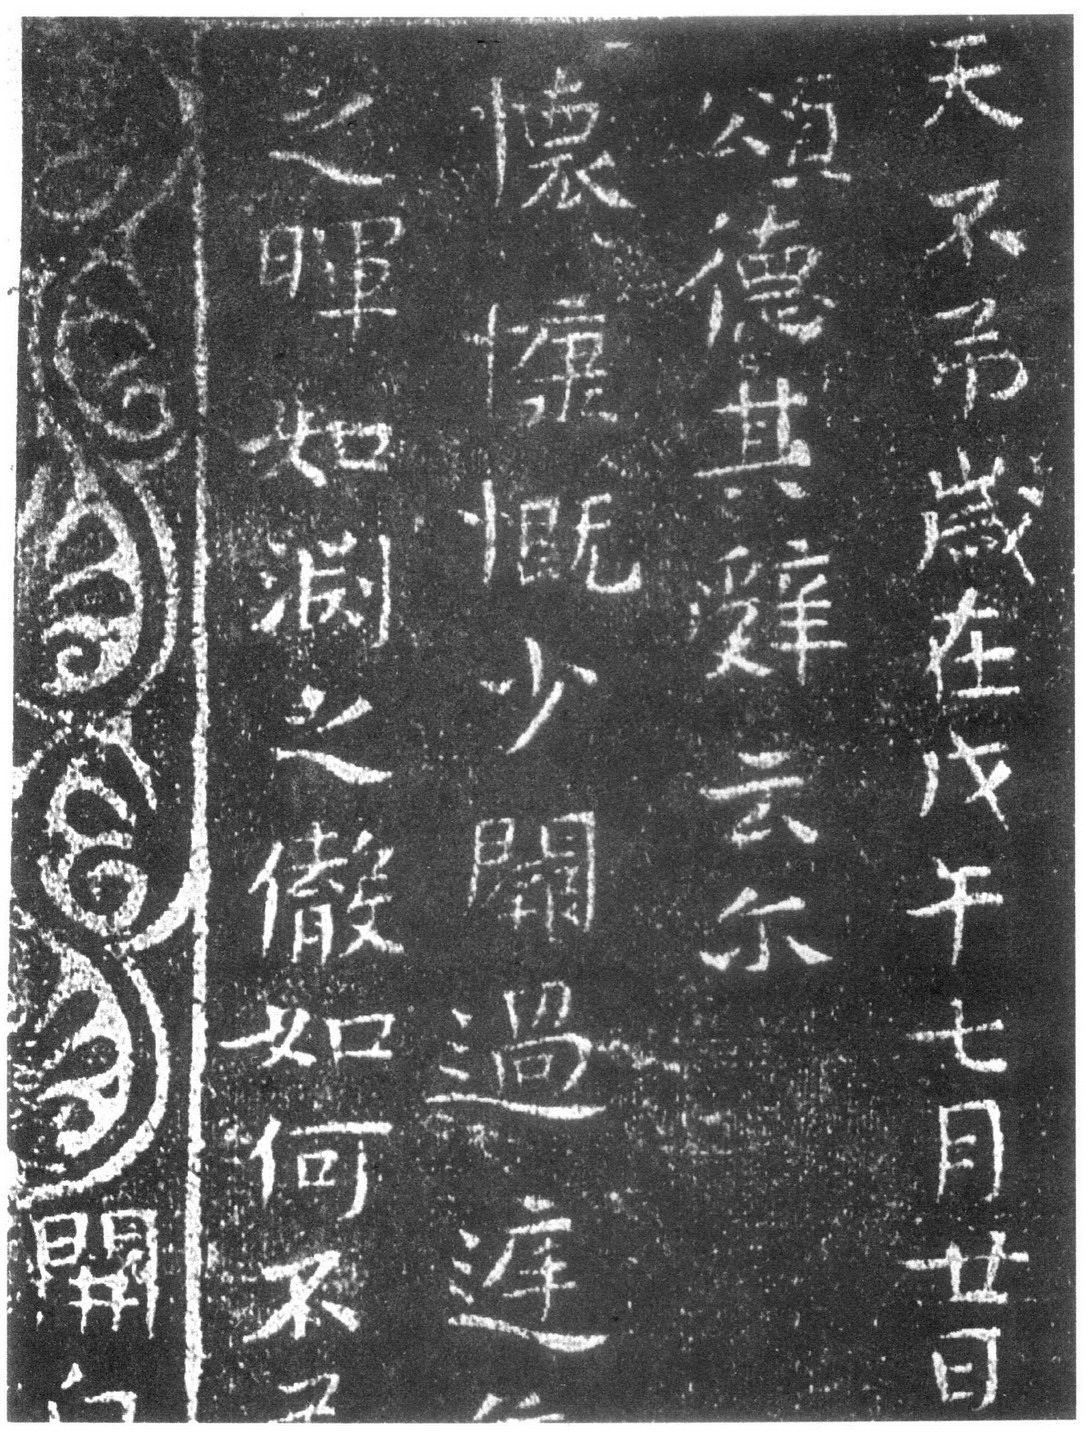 天不弔歲在戊午七月廿日
頌德其辭云尔
懷慷慨少開過
之暉如淵之徹如何不
開